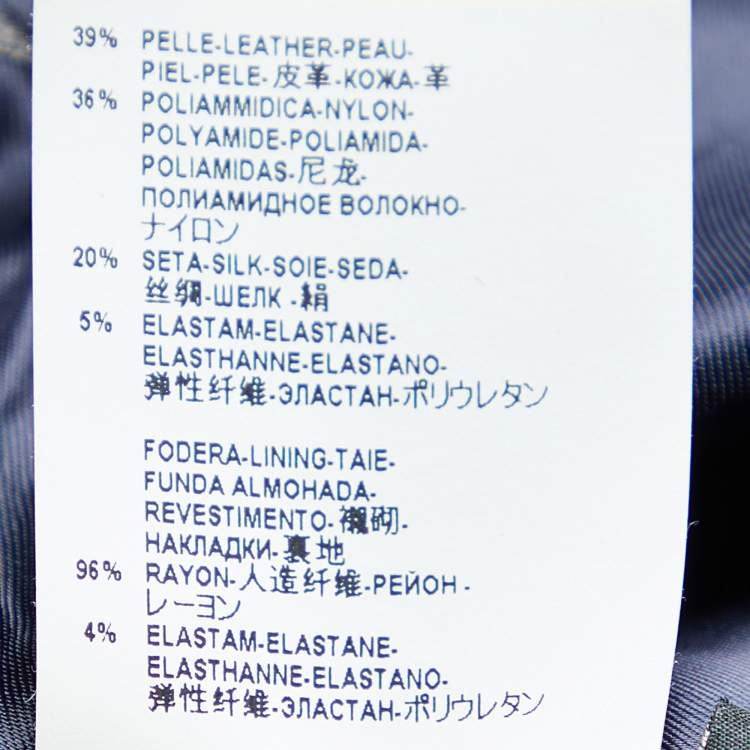 39% PELLE-LEATHER-PEAU-
PIEL-PELE-皮革-КОЖА-革
36% POLIAMMIDICA-NYLON-
POLYAMIDE-POLIAMIDA-
POLIAMIDAS-尼龙-
ПОЛИАМИДНОЕ ВОЛОКНО-
ナイロン
20% SETA-SILK-SOIE-SEDA-
丝绸-ШЕЛК-絹
5% ELASTAM-ELASTANE-
ELASTHANNE-ELASTANO-
弹性纤维-ЭЛАСТАН-ポリウレタン
FODERA-LINING-TAIE-
FUNDA ALMOHADA-
REVESTIMENTO-襯砌-
НАКЛАДКИ-裏地
96% RAYON-人造纤维-РЕЙОН-
レーヨン
4% ELASTAM-ELASTANE-
ELASTHANNE-ELASTANO-
弹性纤维-ЭЛАСТАН-ポリウレタン